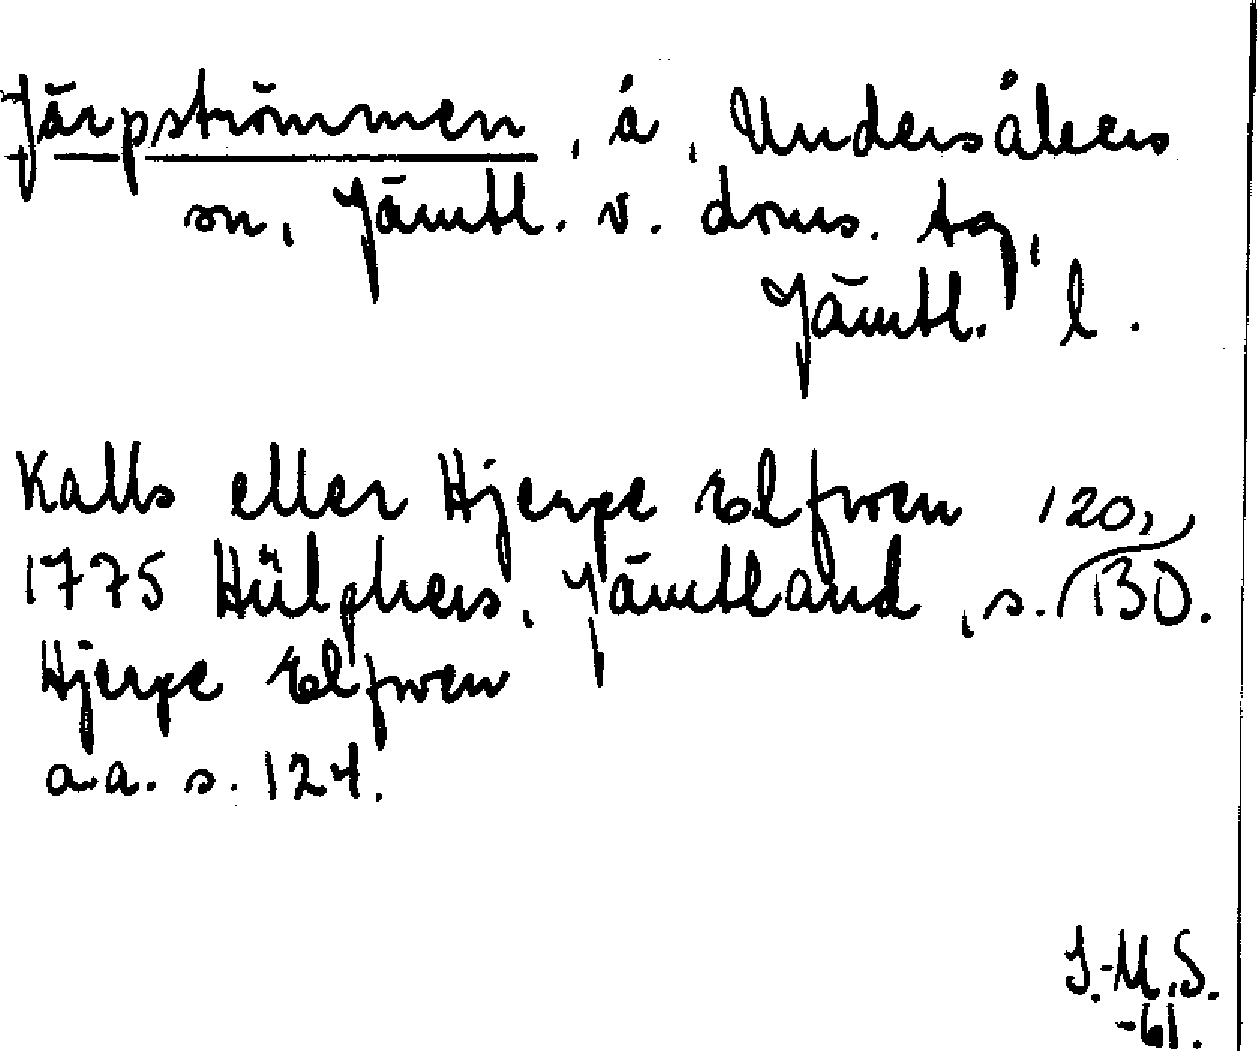 Järpströmmen, å, Undersåkers
sn, Jämtl. v. doms. tg,
Jämtl. l.
Kalls eller Hjerpe Elfwen 120,
1775 Hülphers, Jämtland, s. 130.
Hjerpe Elfwen
a.a. s. 124.
I.-M.S.
-61.